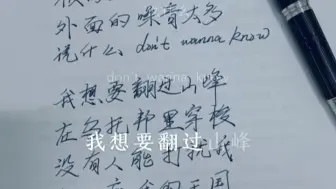 外面的噪音太多
说什么 don't wanna know
don't wanna know
我想要翻过山峰
在乌托邦里穿梭
我想要翻过山峰
没有人能打扰我